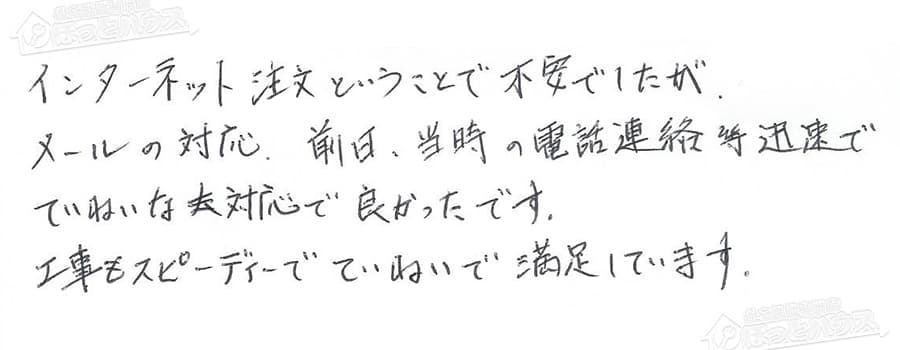 インターネット注文ということで不安でしたが、
メールの対応、前日、当時の電話連絡等迅速で
ていねいな対応で良かったです。
工事もスピーディーでていねいで満足しています。